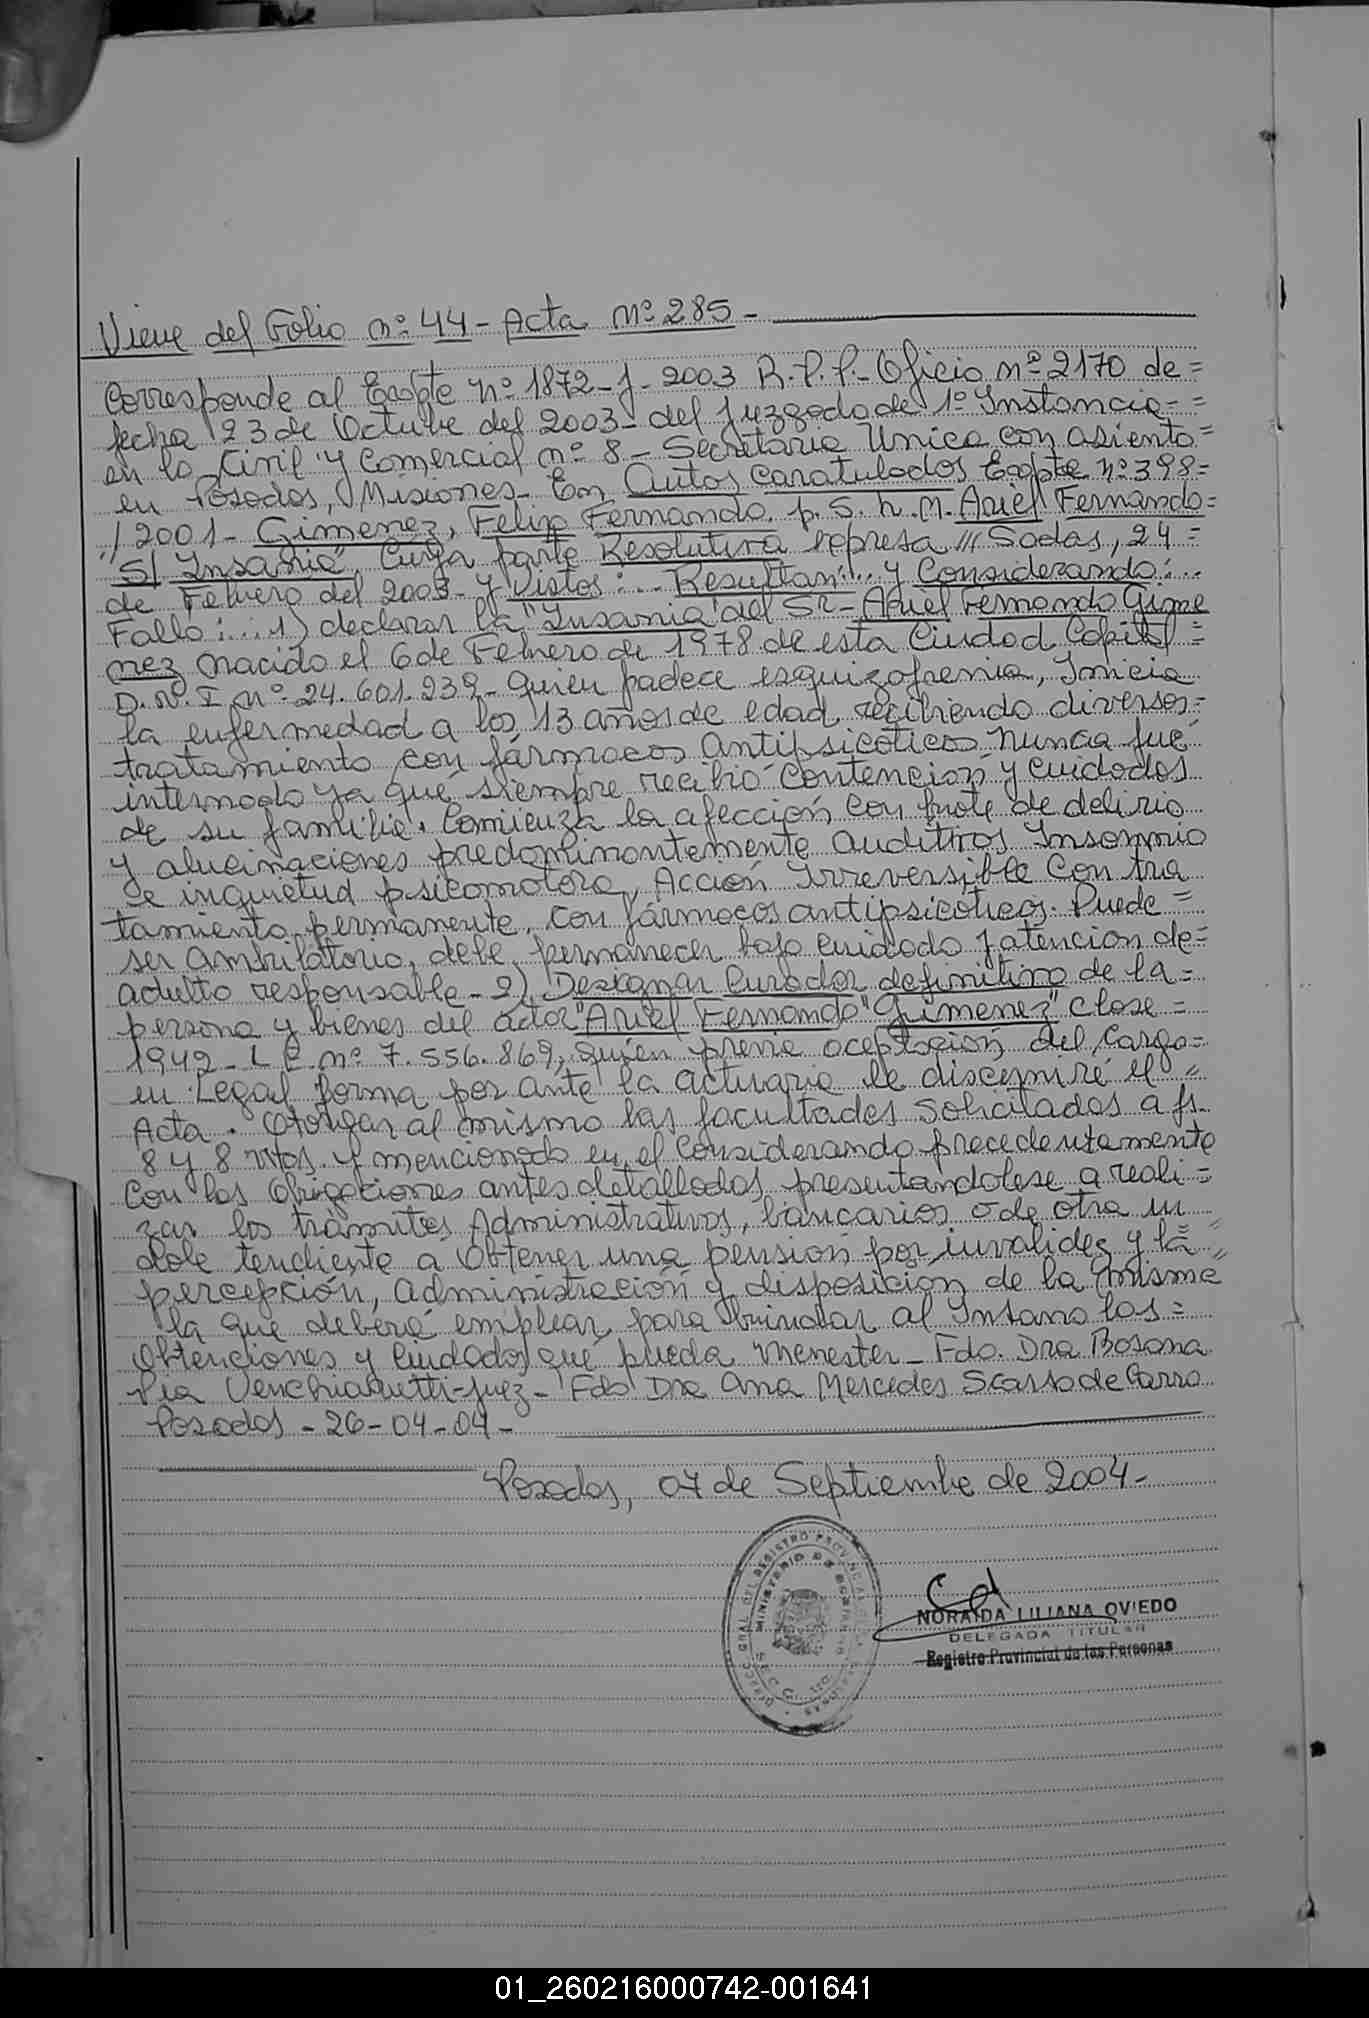 Viene del Folio nº 44 - Acta Nº 285 -
Corresponde al Expte nº 1872 - J - 2003 R.P.P. - Oficio nº 2170 de =
fecha 23 de Octubre del 2003 - del Juzgado de 1º Instancia - =
en lo Civil y Comercial nº 8 - Secretaria Unica con asiento =
en Posadas, Misiones - En Autos Caratulados Expte Nº 398 =
/2001 - Gimenez, Felix Fernando. p. S. h. M. Ariel Fernando =
"S/ Insania" Cuya parte Resolutiva expresa /// Sadas, 24 =
de Febrero del 2003 - y Vistos:... Resultan:... y Considerando:...
Fallo:... 1) declarar la "Insania" del Sr - Ariel Fernando Gime
nez nacido el 6 de Febrero de 1978 de esta Ciudad Capital =
D.N.I nº 24.601.239 - Quien padece esquizofrenia, Inicia
la enfermedad a los 13 años de edad recibiendo diversos =
tratamiento con fármacos antipsicóticos nunca fué
internado ya que siempre recibió contención y cuidados
de su familia. Comienza la afección con de delirio
y alucinaciones predominantemente auditivos Insomnio
e inquietud psicomotora, Acción Irreversible Con tra
tamiento permanente, con fármacos antipsicóticos. Puede =
ser ambulatorio, debe permanecer bajo cuidado y atención de =
adulto responsable - 2) Designar Curador definitivo de la =
persona y bienes del "Ariel Fernando "Gimenez" clase =
1942 - L E. nº 7.556.869, quien previa aceptación del Cargo =
en Legal forma por ante la actuaria se discernirá el =
Acta. Otorgar al mismo las facultades solicitadas a fs.
8 y 8 vtos. y mencionado en el Considerando precedentemente
con las obligaciones antes detallados, presentandolese a reali =
zar los trámites Administrativos, bancarios o de otra in
dole tendiente a Obtener una pensión por invalidez y la =
percepción, administración y disposición de la misma
la que deberá emplear para brindar al Insano los =
Obtenciones y Cuidados que pueda menester - Fdo. Dra Rosana
Pia Venchiarutti - Juez - Fdo Dra Ana Mercedes Scasso de Carro
Posadas - 26 - 04 - 04 -
Posadas, 07 de Septiembre de 2004 -
NORAIDA LILIANA OVIEDO
DELEGADA TITULAR
Registro Provincial de las Personas
01_260216000742-001641